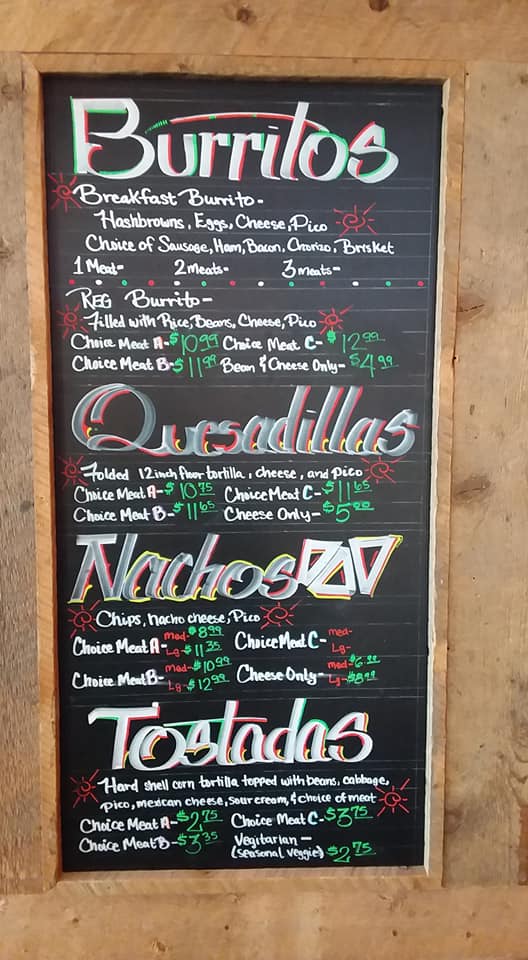 Burritos
Breakfast Burrito-
Hashbrowns, Eggs, Cheese, Pico
Choice of Sausage, Ham, Bacon, Chorizo, Brisket
1 Meat- 2 Meats- 3 meats-
REG Burrito-
Filled with Rice, Beans, Cheese, Pico
Choice Meat A-$10.99 Choice Meat C-$12.99
Choice Meat B-$11.99 Bean & Cheese Only-$4.99
Quesadillas
Folded 12inch flour tortilla, cheese, and pico
Choice Meat A-$10.75 Choice Meat C-$11.65
Choice Meat B-$11.65 Cheese Only-$5.00
Nachos
Chips, nacho cheese, Pico
Choice Meat A- med-$8.99 Choice Meat C- med-
Lg-$11.35 Lg-
Choice Meat B- med-$10.99 Cheese Only- med-$6.99
Lg-$12.99 Lg-$8.99
Tostadas
Hard shell corn tortilla topped with beans, cabbage,
pico, mexican cheese, sour cream, & choice of meat
Choice Meat A-$2.75 Choice Meat C-$3.75
Choice Meat B-$3.35 Vegitarian-
(seasonal veggies) $2.75